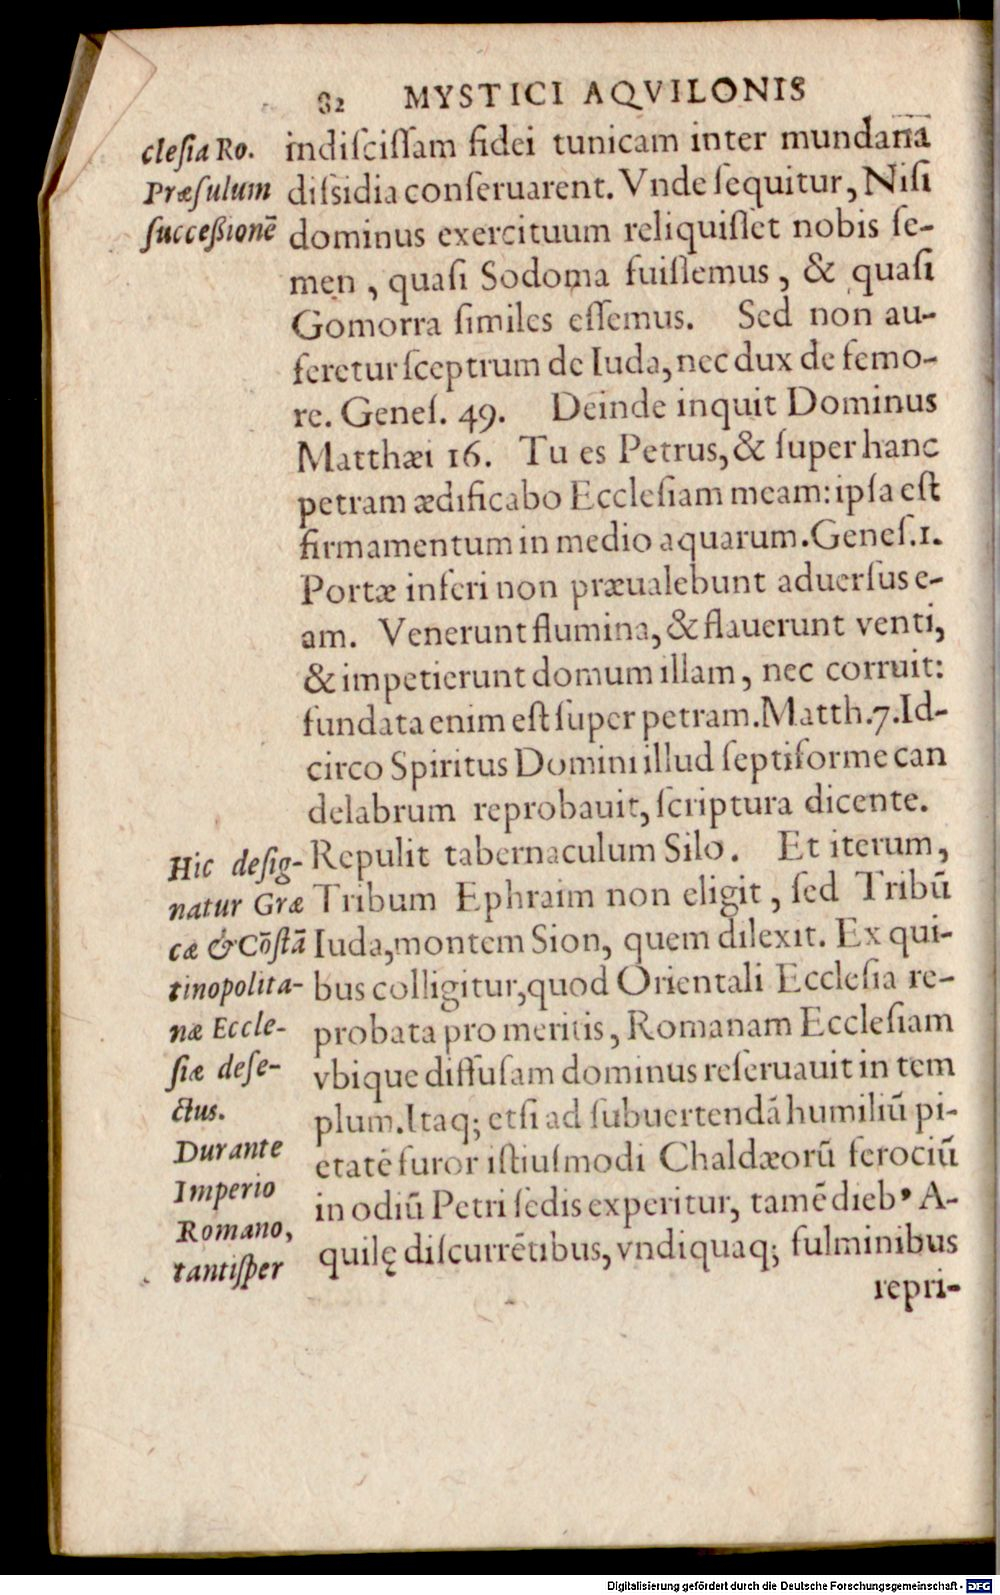 82 MYSTICI AQVILONIS
cleſia Ro.
Præſulum
ſucceßionē
indiſciſſam fidei tunicam inter mundana
diſsidia conſeruarent. Vnde ſequitur, Niſi
dominus exercituum reliquiſſet nobis ſe-
men , quaſi Sodoma fuiſſemus , & quaſi
Gomorra ſimiles eſſemus. Sed non au-
feretur ſceptrum de Iuda, nec dux de femo-
re. Geneſ. 49. Deinde inquit Dominus
Matthæi 16. Tu es Petrus, & ſuper hanc
petram ædificabo Eccleſiam meam: ipſa eſt
firmamentum in medio aquarum. Geneſ. 1.
Portæ inferi non præualebunt aduerſus e-
am. Venerunt flumina, & flauerunt venti,
& impetierunt domum illam, nec corruit:
fundata enim eſt ſuper petram. Matth. 7. Id-
circo Spiritus Domini illud ſeptiforme can
delabrum reprobauit, ſcriptura dicente.
Repulit tabernaculum Silo. Et iterum,
Tribum Ephraim non eligit, ſed Tribū
Iuda, montem Sion, quem dilexit. Ex qui-
bus colligitur, quod Orientali Eccleſia re-
probata pro meritis, Romanam Eccleſiam
vbique diffuſam dominus reſeruauit in tem
plum. Itaq; etſi ad ſubuertendā humiliū pi-
etatē furor iſtiuſmodi Chaldæorū ferociū
in odiū Petri ſedis experitur, tamē dieb⁹ A-
quilę diſcurrētibus, vndiquaq; fulminibus
repri-
Hic deſig-
natur Græ
cæ & Cōſtā
tinopolita-
næ Eccle-
ſiæ defe-
ctus.
Durante
Imperio
Romano,
tantiſper
Digitalisierung gefördert durch die Deutsche Forschungsgemeinschaft - DFG